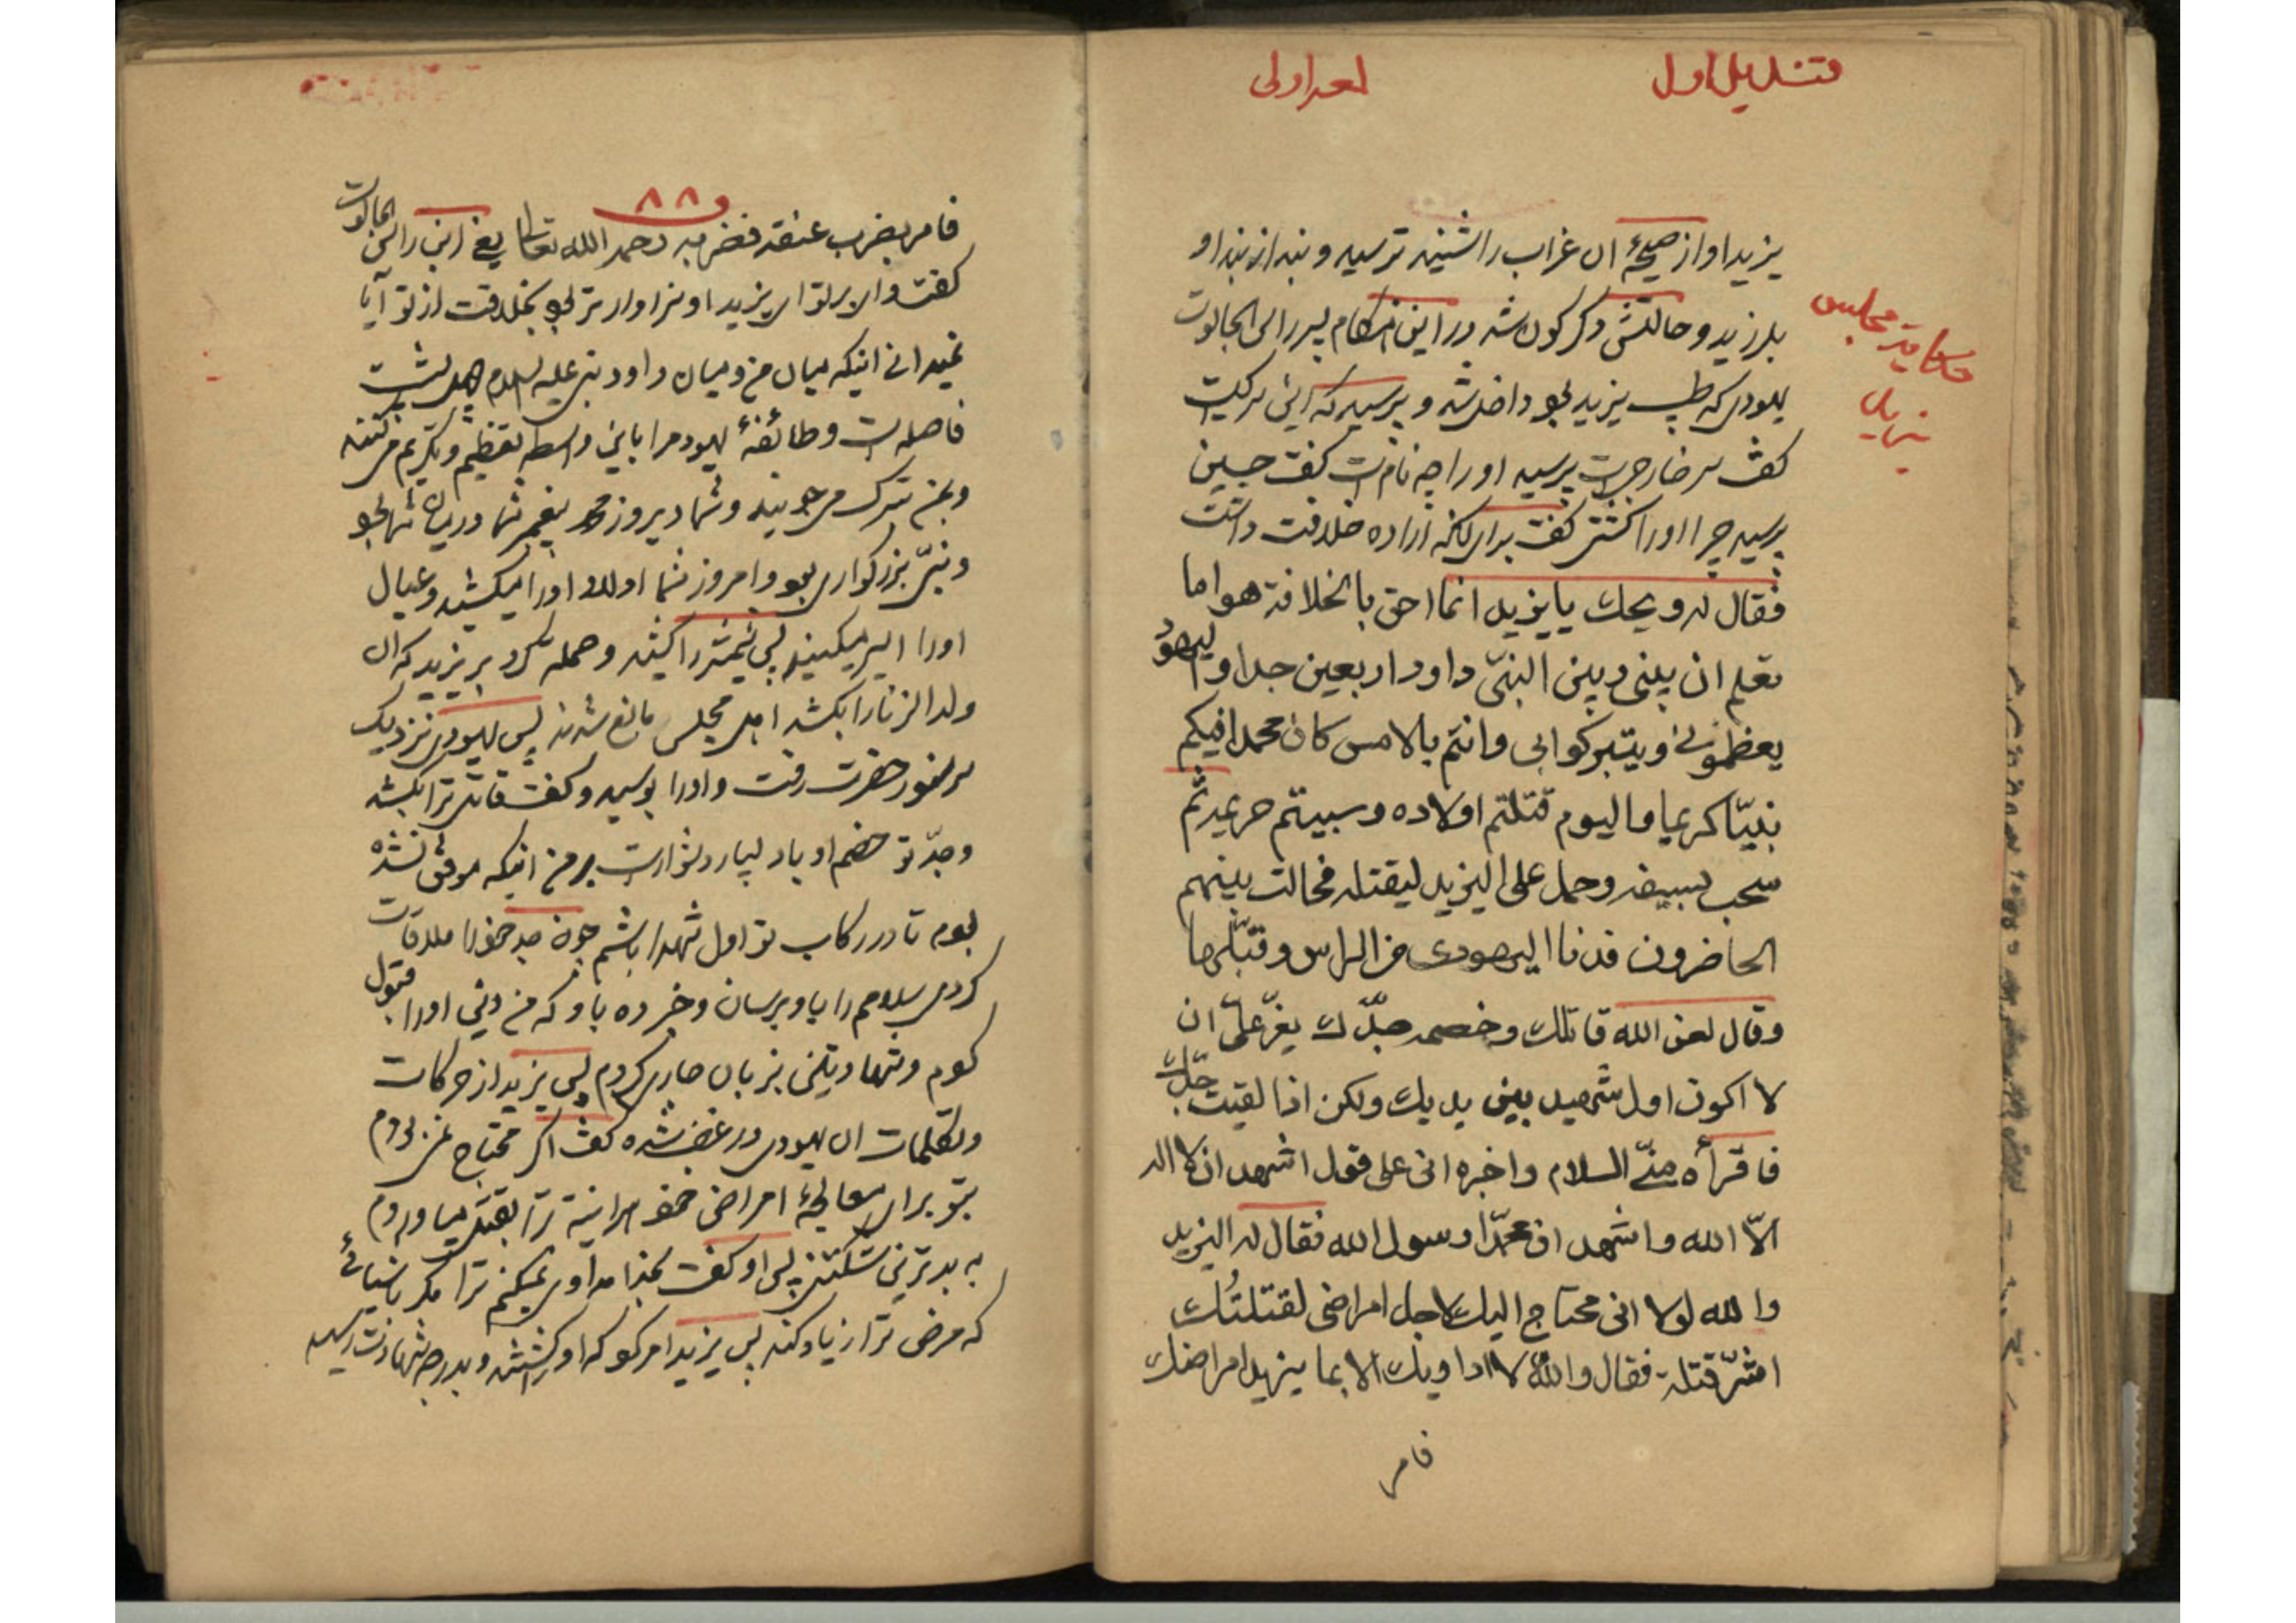 قندیل اول
لمعه اولی
حکایت مجلس
یزید
یزید اواز صیحهٔ ان غراب را شنید ترسید و بند از بند او
بلرزید و حالتش دگرگون شد در این هنگام پسر راس الجالوت
یهودی که طبیب یزید بود داخل شد و پرسید که این سر کیست
گفت سر خارجیست پرسید او را چه نام است گفت حسین
پرسید چرا او را کشتی گفت برای انکه اراده خلافت داشت
فقال له ویحك یا یزید انما احق بالخلافة هو اما
تعلم ان بینی و بین النبیّ داود اربعین جدا و الیهود
یعظمونی و یتبرکوا بی و انتم بالامس کان محمد افیکم
نبیّا کریما و الیوم قتلتم اولاده و سبیتم حریمه ثم
سحب بسیفه و حمل علی الیزید لیقتله فحالت بینهم
الحاضرون فدنا الیهودی من الراس و قبّلها
وقال لعن الله قاتلك و خصمه جدّك یعزّ علیّ ان
لا اکون اول شهید بین یدیك ولکن اذا لقیت جدّك
فاقرأه منّی السلام و اخبره انی علی قول اشهد ان لا اله
الّا الله و اشهد ان محمّدا رسول الله فقال له الیزید
والله لولا انی محتاج الیك لاجل امراضی لقتلتُك
اشرّ قتلة فقال والله لا اداویك الا بما یزید امراضك
فامر
۸۸
فامر بضرب عنقه فضربه رحمه الله تعالی یعنی ابن راس الجالوت
گفت وای بر تو ای یزید او سزاوارتر بود بخلافت از تو آیا
نمیدانی اینکه میان من و میان داود نبی علیه السلام چهل پشت
فاصله است و طائفهٔ یهود مرا باین واسطه تعظیم و تکریم می‌کنند
و بمن تبرک می‌جویند و شما دیروز محمد پیغمبر شما در میان شما بود
و نبیّ بزرگواری بود و امروز شما اولاد او را میکشید و عیال
او را اسیر میکنید پس شمشیر را کشید و حمله کرد بر یزید که ان
ولد الزنا را بکشد اهل مجلس مانع شدند پس یهودی نزدیک
سر منور حضرت رفت و او را بوسید و گفت قاتل ترا بکشد
و جدّ تو خصم او باد بسیار دشوار است بر من اینکه موفق نشده
بودم تا در رکاب تو اول شهدا باشم چون جد خود را ملاقات
کردی سلام مرا باو برسان و خبر ده باو که من دین او را قبول
کردم و شهادتین بزبان جاری کردم پس یزید از حرکات
و کلمات ان یهودی در غضب شده گفت اگر محتاج نمی‌بودم
بتو برای معالجهٔ امراض خود هر اینه ترا بقتل میاوردم
به بدترین کشتن پس او گفت بخدا مداوی نمیکنم ترا مگر باشیائی
که مرض ترا زیاد کند پس یزید امر کرد که او را کشتند و بدرجه شهادت رسید